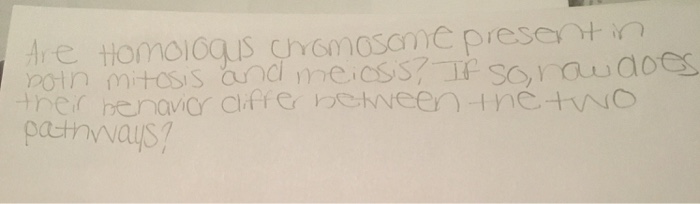 Are Homologus chromosome present in
both mitosis and meiosis? If so, how does
their behavior differ between the two
pathways?